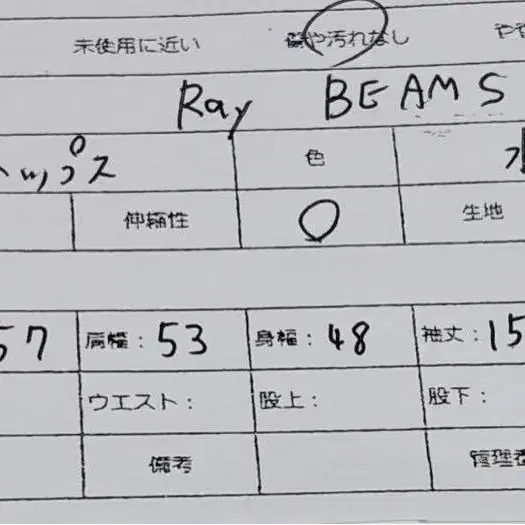 未使用に近い 傷や汚れなし やや
Ray BEAMS
トップス 色
伸縮性 ○ 生地
57 肩幅：53 身幅：48 袖丈：15
ウエスト： 股上： 股下：
備考 管理番